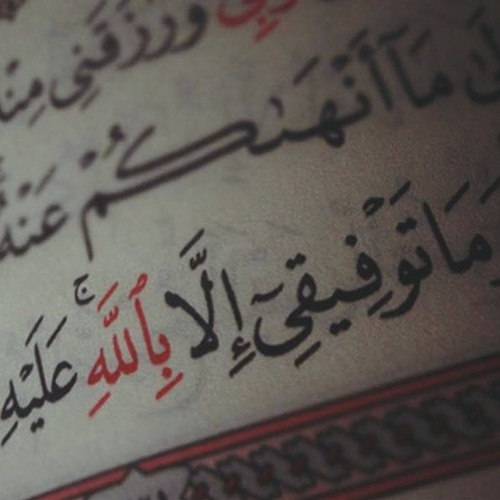 رَبِّى وَرَزَقَنِى مِنْهُ
مَآ أَنْهَىٰكُمْ عَنْهُ
وَمَا تَوْفِيقِىٓ إِلَّا بِٱللَّهِ ۚ عَلَيْهِ